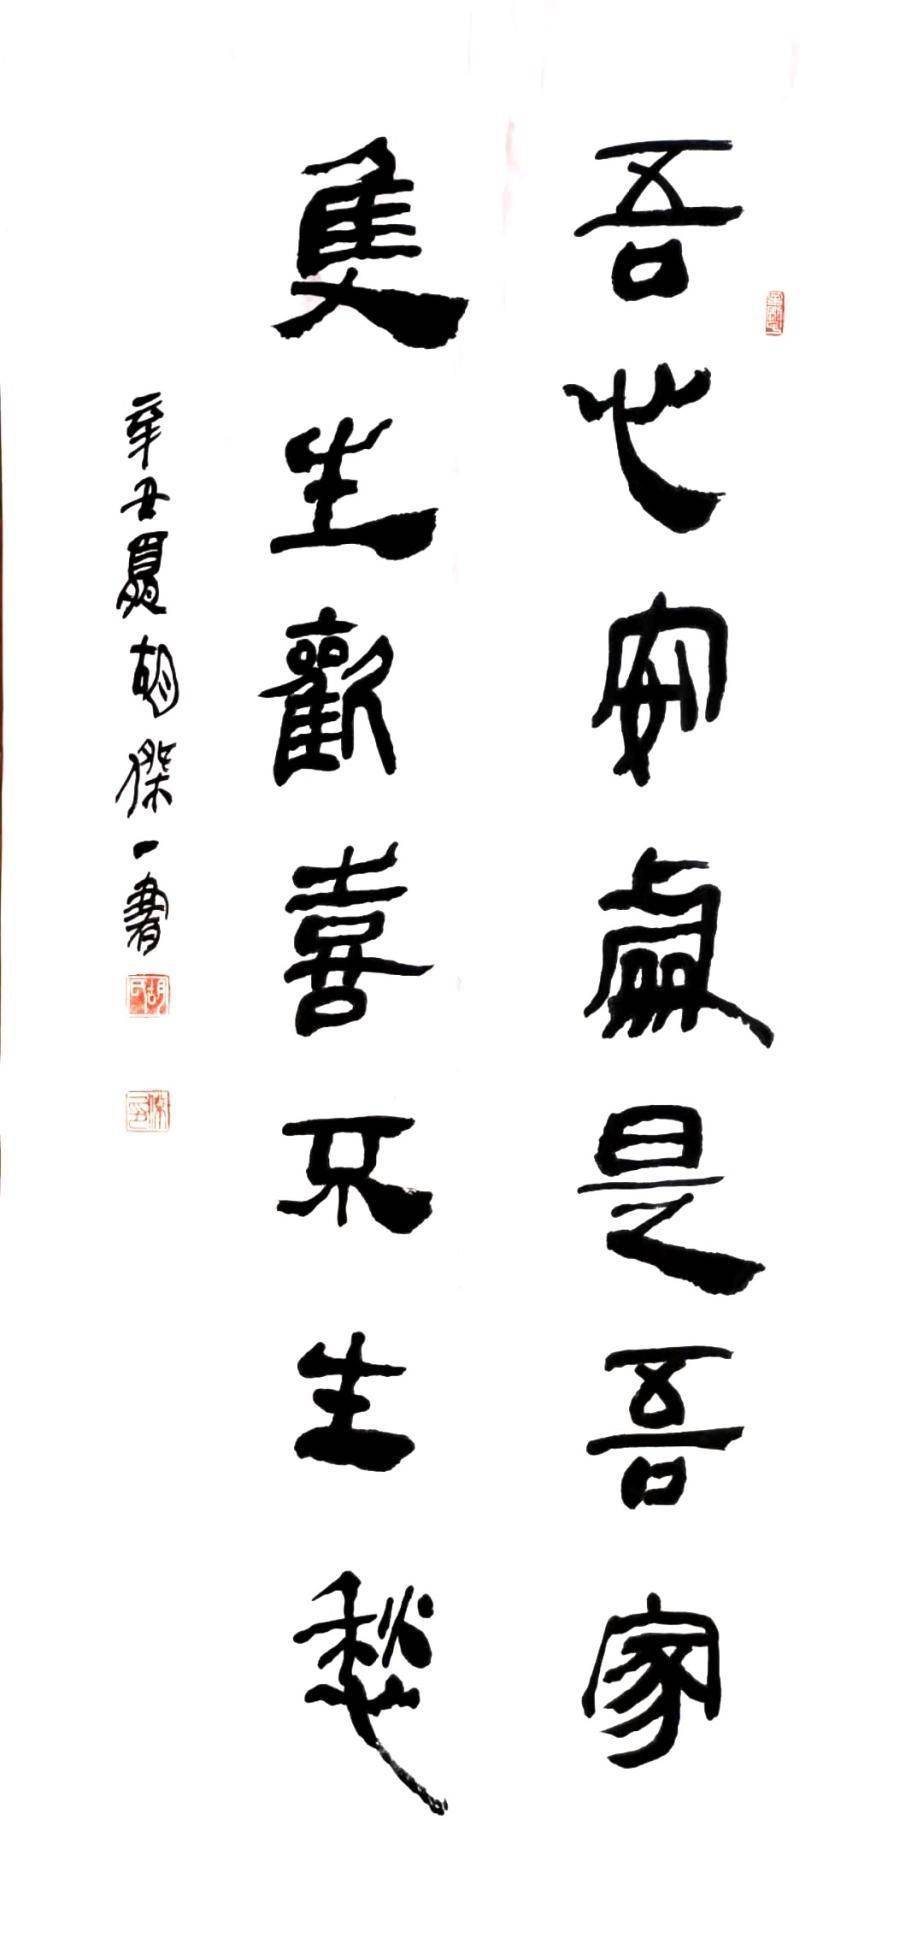 吾心安處是吾家
隻生歡喜不生愁
辛丑夏胡傑一書